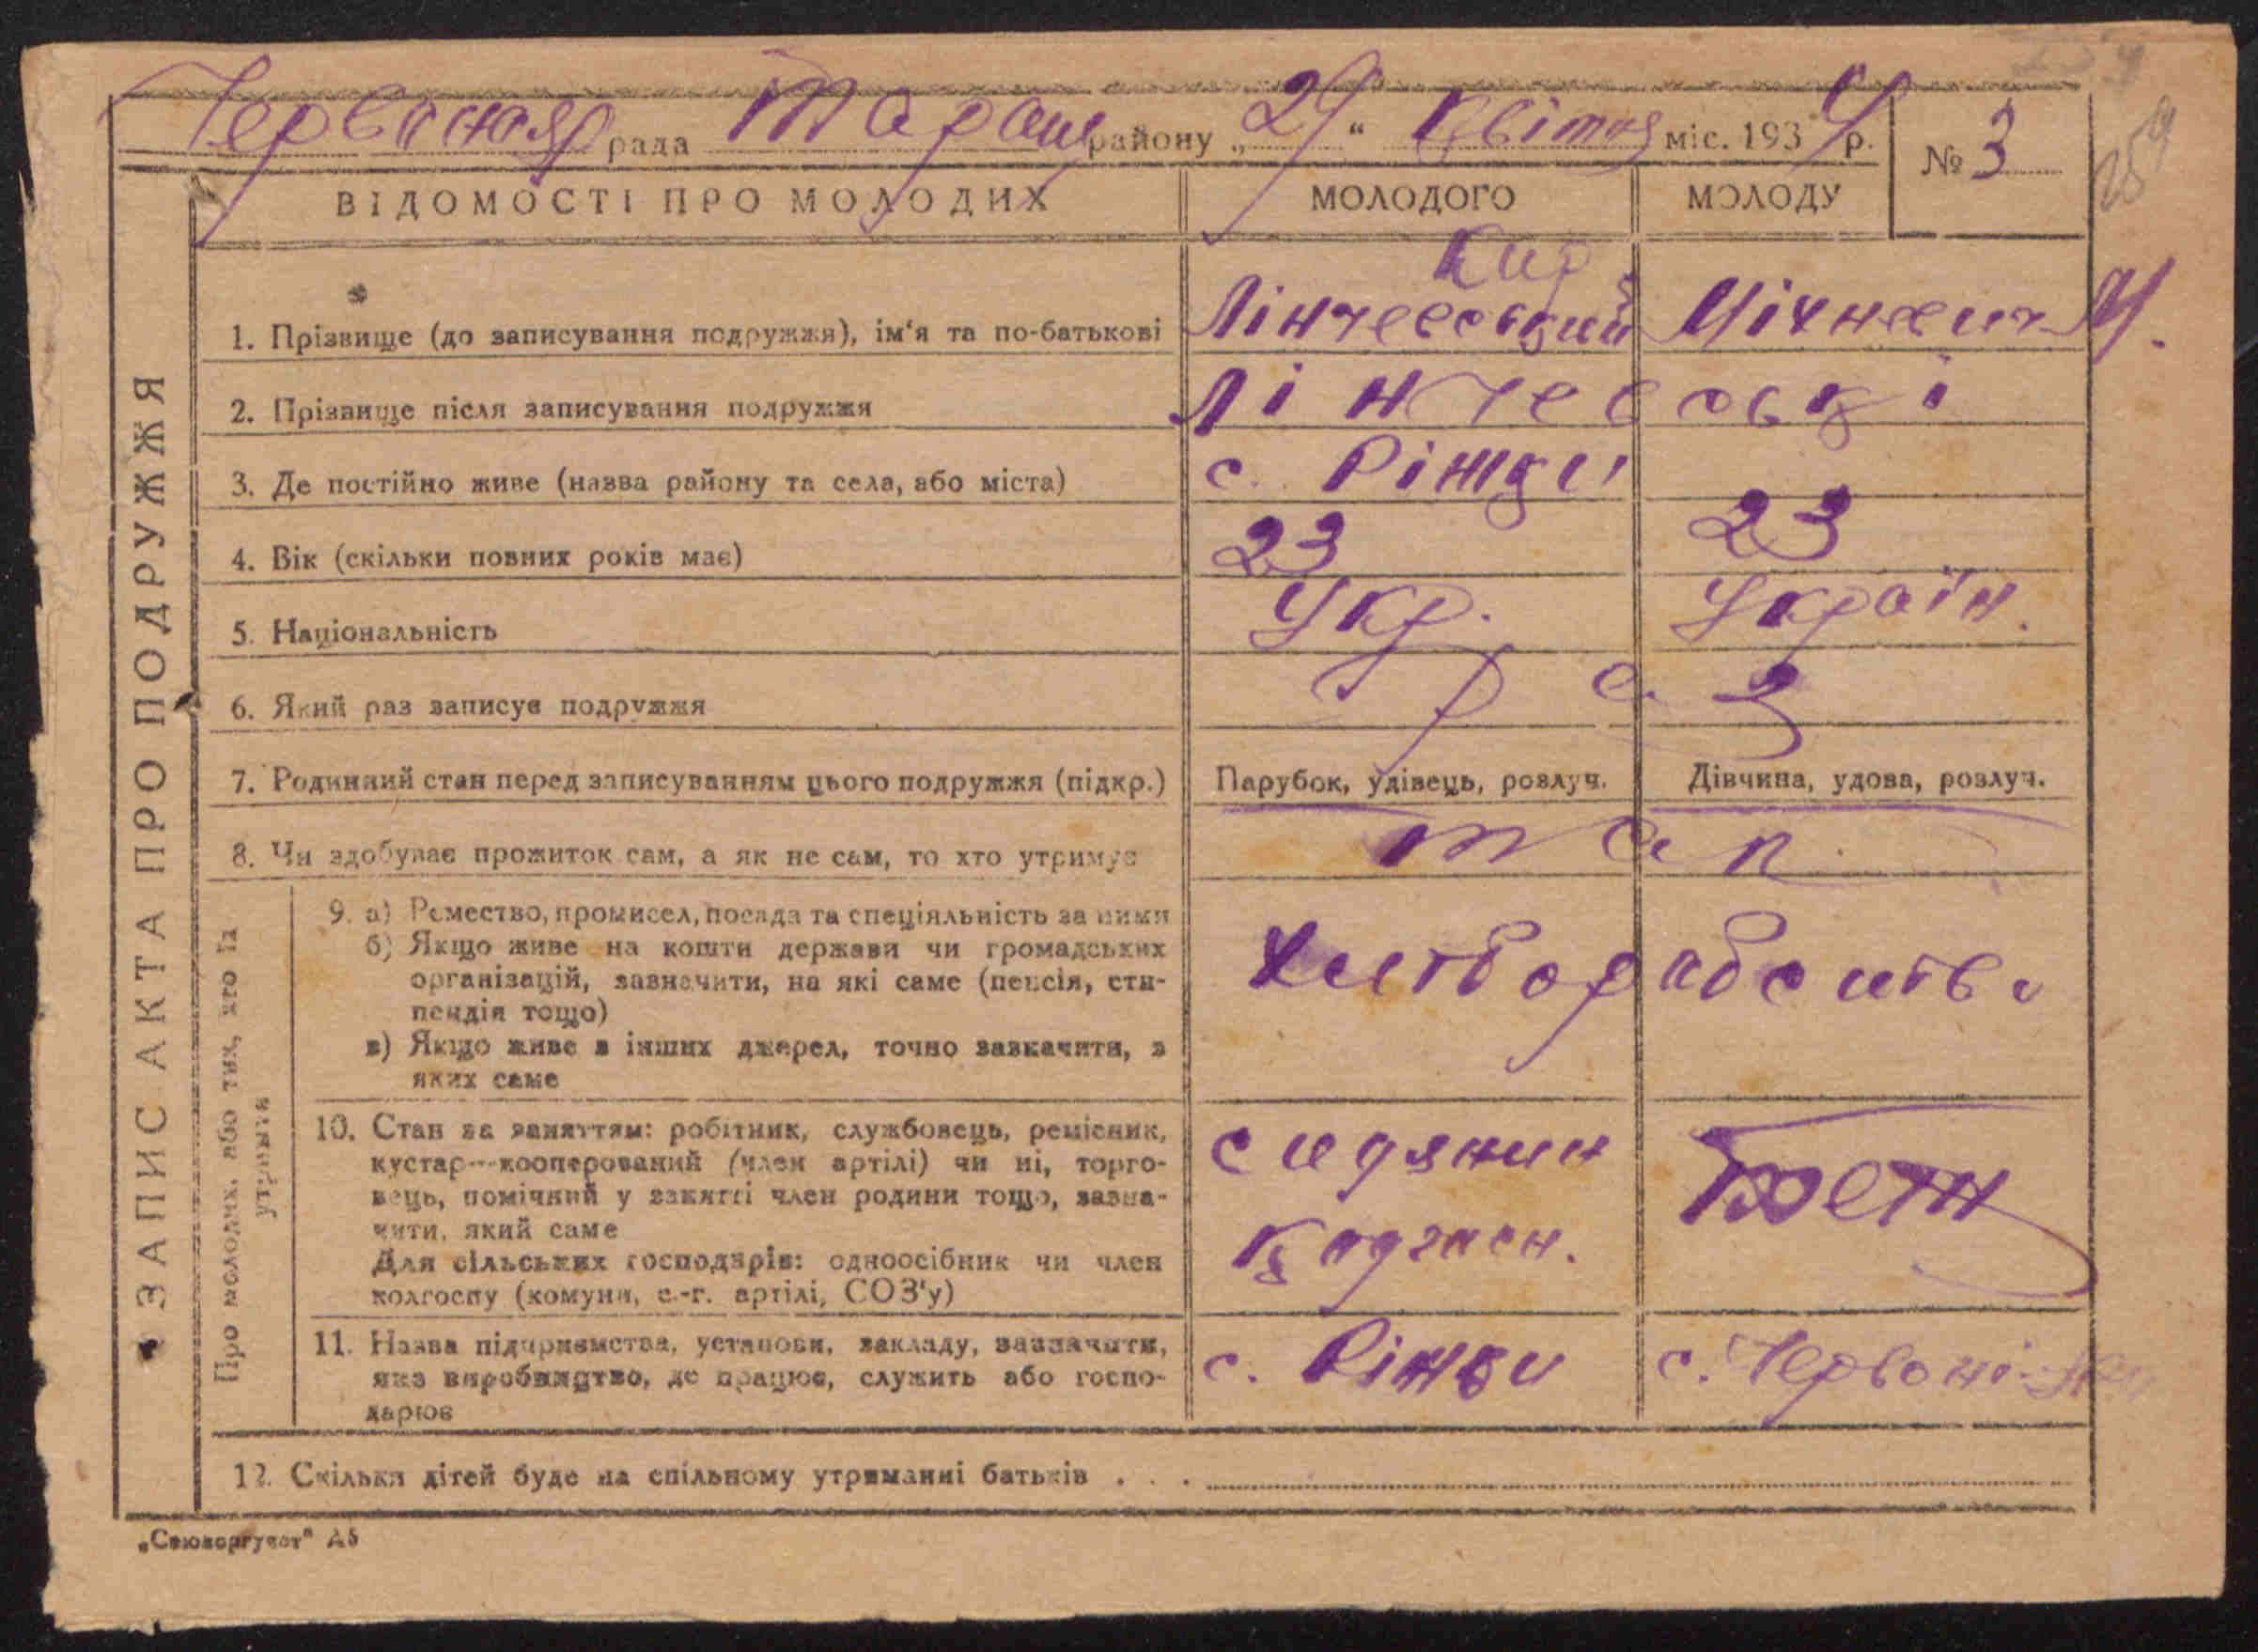 Червонояр рада Таращ району „24“ Квітня міс. 1934 р. № 3
254
ВІДОМОСТІ ПРО МОЛОДИХ МОЛОДОГО МОЛОДУ
ЗАПИС АКТА ПРО ПОДРУЖЖЯ
Кир
1. Прізвище (до записування подружжя), ім'я та по-батькові Лінчевський Міхневич М.
2. Прізвище після записування подружжя Лінчевські
3. Де постійно живе (назва району та села, або міста) с. Ріжки
4. Вік (скільки повних років має) 23 23
5. Національність Укр. Україн.
6. Який раз записує подружжя
7. Родинний стан перед записуванням цього подружжя (підкр.) Парубок, удівець, розлуч. Дівчина, удова, розлуч.
8. Чи здобуває прожиток сам, а як не сам, то хто утримує так
Про молодих, або тих, хто їх
утримує
9. а) Ремество, промисел, посада та спеціяльність за ними
б) Якщо живе на кошти держави чи громадських
організацій, зазначити, на які саме (пенсія, сти-
пендія тощо)
в) Якщо живе з інших джерел, точно зазначити, з
яких саме
10. Стан за заняттям: робітник, службовець, ремісник, селянин
кустар—кооперований (член артілі) чи ні, торго-
вець, помічний у занятті член родини тощо, зазна-
чити, який саме
Для сільських господарів: одноосібник чи член
колгоспу (комуни, с.-г. артілі, СОЗ'у)
11. Назва підприємства, установи, закладу, зазначити, с. Ріжки с.
яке виробництво, де працює, служить або госпо-
дарює
12. Скільки дітей буде на спільному утриманні батьків . . .